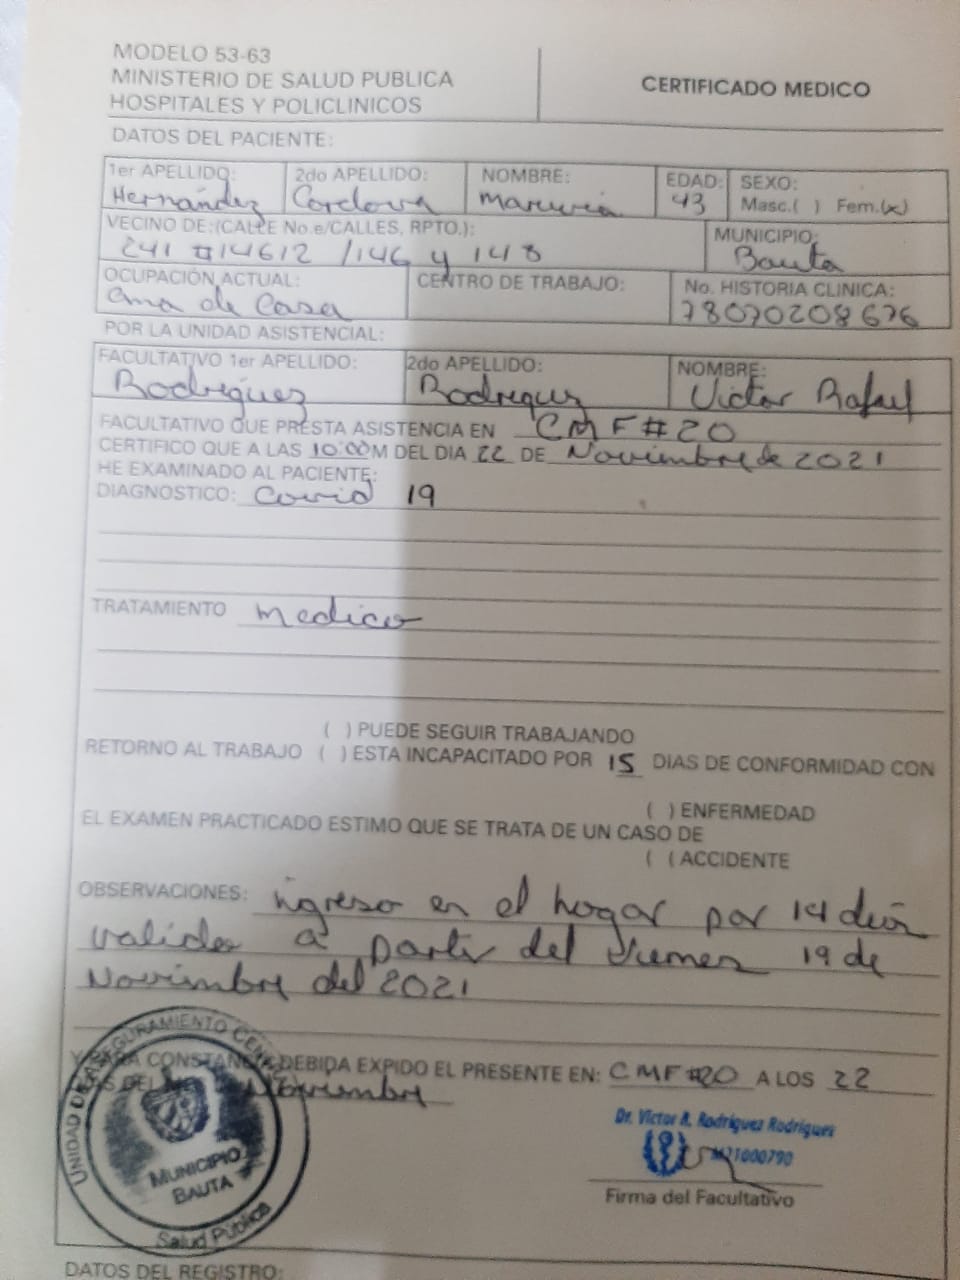 MODELO 53-63
MINISTERIO DE SALUD PUBLICA
HOSPITALES Y POLICLINICOS
CERTIFICADO MEDICO
DATOS DEL PACIENTE:
1er APELLIDO: 2do APELLIDO: NOMBRE: EDAD: SEXO:
Hernández Cordova 43 Masc.( ) Fem.(x)
VECINO DE:(CALLE No.e/CALLES, RPTO.): MUNICIPIO:
241 #14612 /146 y 148 Bauta
OCUPACIÓN ACTUAL: CENTRO DE TRABAJO: No. HISTORIA CLINICA:
Ama de Casa 78070208676
POR LA UNIDAD ASISTENCIAL:
FACULTATIVO 1er APELLIDO: 2do APELLIDO: NOMBRE:
Rodríguez Rodriguez Victor Rafael
FACULTATIVO QUE PRESTA ASISTENCIA EN CMF#20
CERTIFICO QUE A LAS 10:00 M DEL DIA 22 DE Noviembre de 2021
HE EXAMINADO AL PACIENTE:
DIAGNOSTICO: Covid 19
TRATAMIENTO medico
( ) PUEDE SEGUIR TRABAJANDO
RETORNO AL TRABAJO ( ) ESTA INCAPACITADO POR 15 DIAS DE CONFORMIDAD CON
( ) ENFERMEDAD
EL EXAMEN PRACTICADO ESTIMO QUE SE TRATA DE UN CASO DE
( ( ACCIDENTE
OBSERVACIONES: ingreso en el hogar por 14 dias
valido a partir del Viernes 19 de
Noviembre del 2021
Y PARA CONSTANCIA DEBIDA EXPIDO EL PRESENTE EN: CMF #20 A LOS 22
DEL Noviembre
UNIDAD DE ASEGURAMIENTO
MUNICIPIO
BAUTA
Salud Pública
Dr. Victor R. Rodríguez Rodríguez
M21000790
Firma del Facultativo
DATOS DEL REGISTRO: